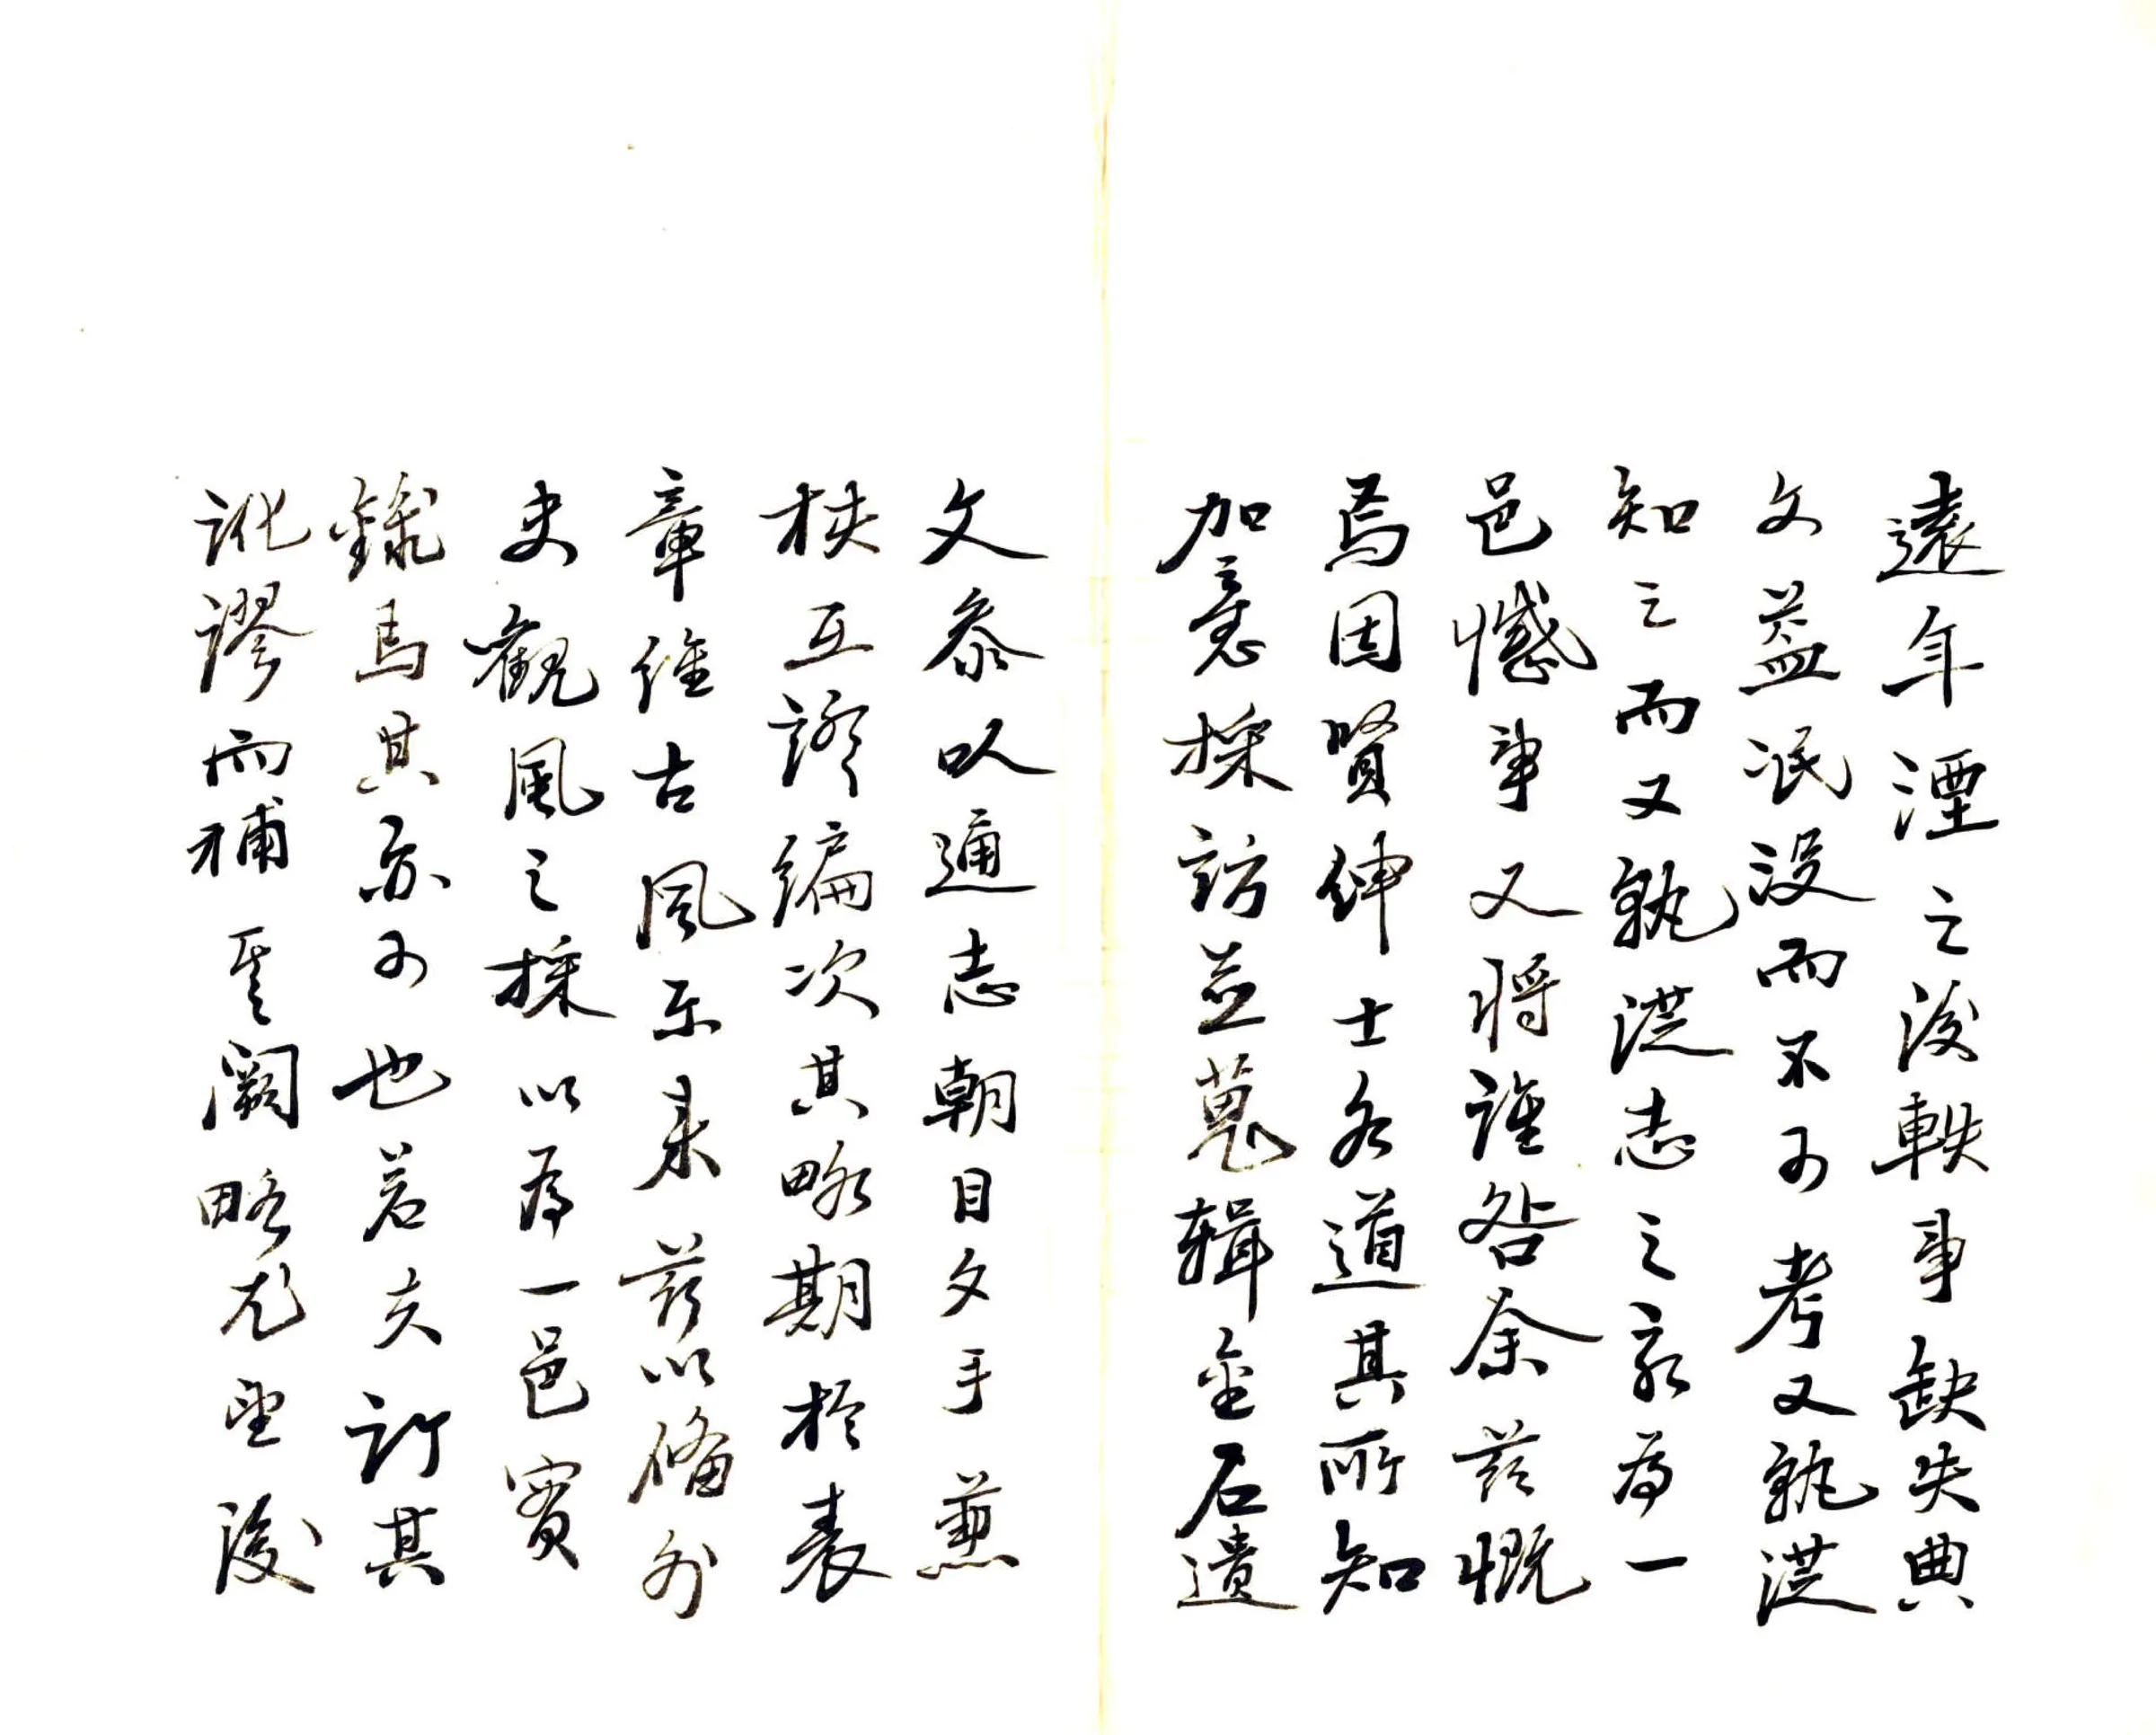 遠年湮之後軼事缺失典
文益泯没而不可考又孰從
知之而又孰從志之亦為一
邑憾事又將誰咎余茲慨
焉因賢紳士各道其所知
加意採訪並蒐輯金石遺
文泰以通志朝目夕手燕
校互證編次其略期於表
章往古風示来茲以俻外
史觀風之採以為一邑實
錄焉其亦可也若夫訂其
訛謬而補其闕略尤望後